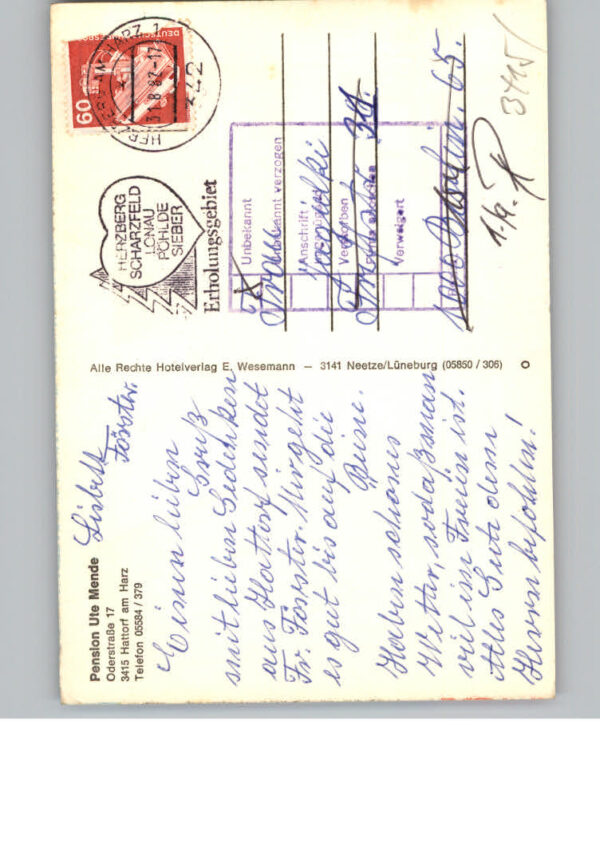 Pension Ute Mende
Oderstraße 17
3415 Hattorf am Harz
Telefon 05584 / 379
Lisbeth
Förster.
Einen lieben
Gruß
mit lieben Gedenken
aus Hattorf sendet
Fr. Förster. Mir geht
es gut bis auf die
Beine.
Haben schönes
Wetter, sodaßman
viel im Freien ist.
Alles Gute dem
Herrn befohlen!
Alle Rechte Hotelverlag E. Wesemann — 3141 Neetze/Lüneburg (05850 / 306)
HERZBERG AM HARZ 1
31.8.82-17
3422
60
HERZBERG
SCHARZFELD
LONAU
PÖHLDE
SIEBER
Erholungsgebiet
Unbekannt
Unbekannt verzogen
Anschrift
Verstorben
Verweigert
Frau
1000 Berlin. 65.